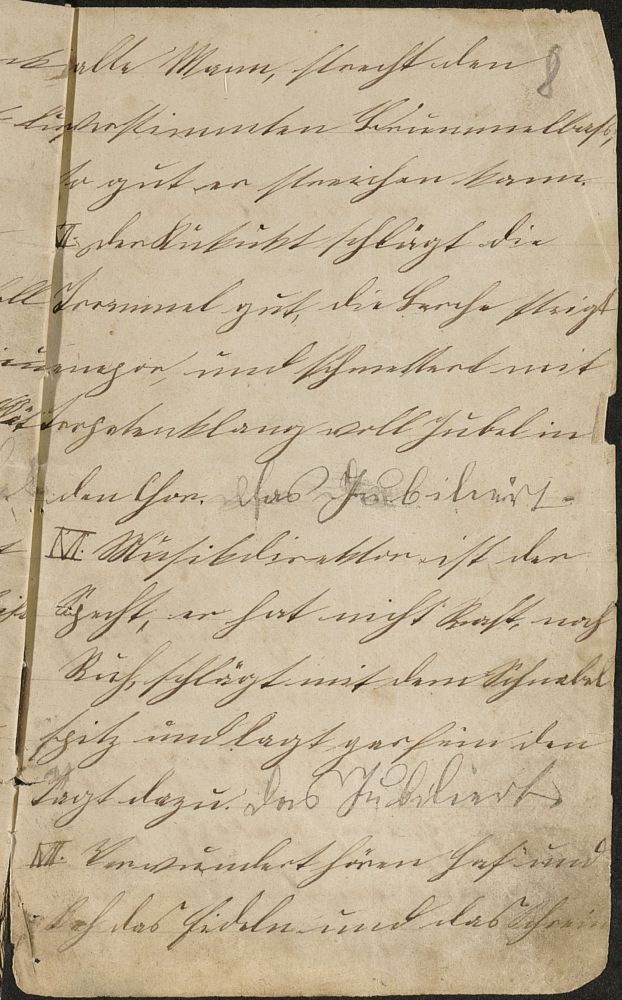 8
alte Mann, streicht den
verstimmten Brummelbaß,
so gut er streichen kann.
V. Der Kukukt schlägt die
Trommel gut, die Lerche steigt
empor, und schmettert mit
Trompetenklang voll Jubel in
den Chor. Das Jubiliert
VI. Musikdirektor ist der
Specht, er hat nicht Rast, noch
Ruh, schlägt mit dem Schnabel
spitz und lagt gar fein den
Tagt dazu. Das Jubiliert
VII. Verwundert hören Has und
Reh das fideln und das Schrein